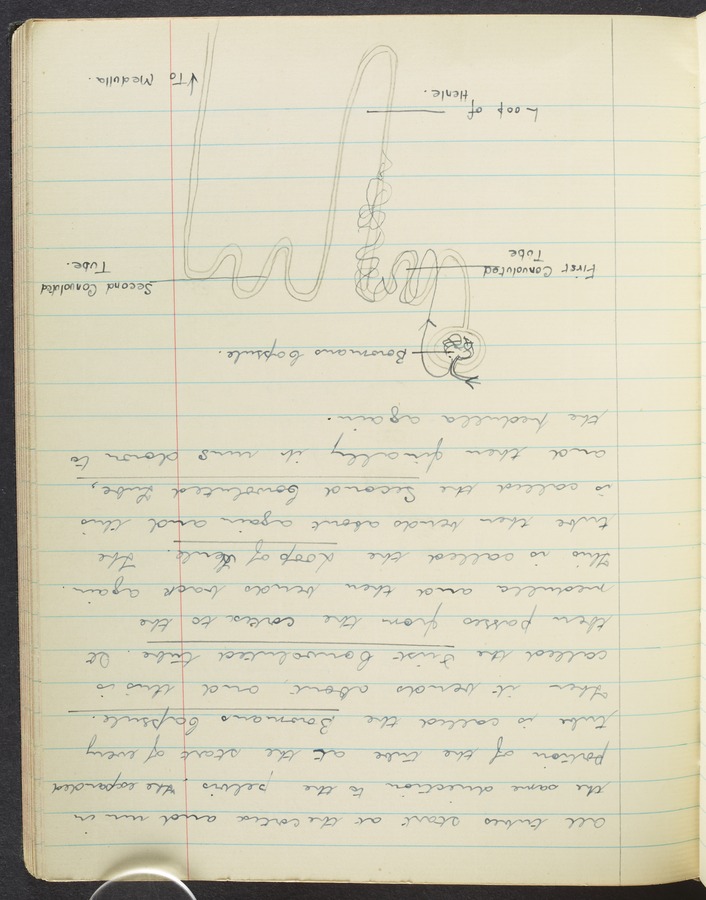 All tubes start at the cortex and run in
the same direction to the pelvis. The expanded
portion of the tube at the start of every
tube is called the Bowmans Capsule.
Then it bends about and this is
called the First Convoluted Tube. It
then passes from the cortex to the
medulla and then bends back again.
This is called the Loop of Henle. The
tube then bends about again and this
is called the Second Convoluted Tube,
and then finally it runs down to
the medulla again.
Bowmans Capsule.
First Convoluted
Tube
Second Convoluted
Tube.
Loop of
Henle.
To Medulla.